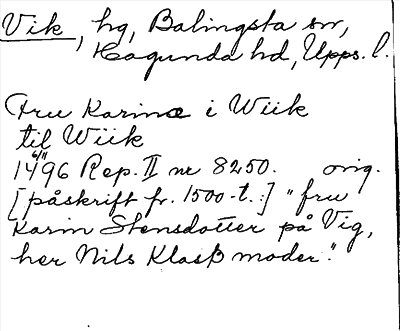 Vik, hg, Balingsta sn,
Hagunda hd, Upps. l.
Fru Karine i Wiik
til Wiik
6/11
1496 Rep. II nr 8250. orig.
[påskrift fr. 1500-t.:] "fru
Karin Stensdotter på Vig,
her Nils Klasß moder."